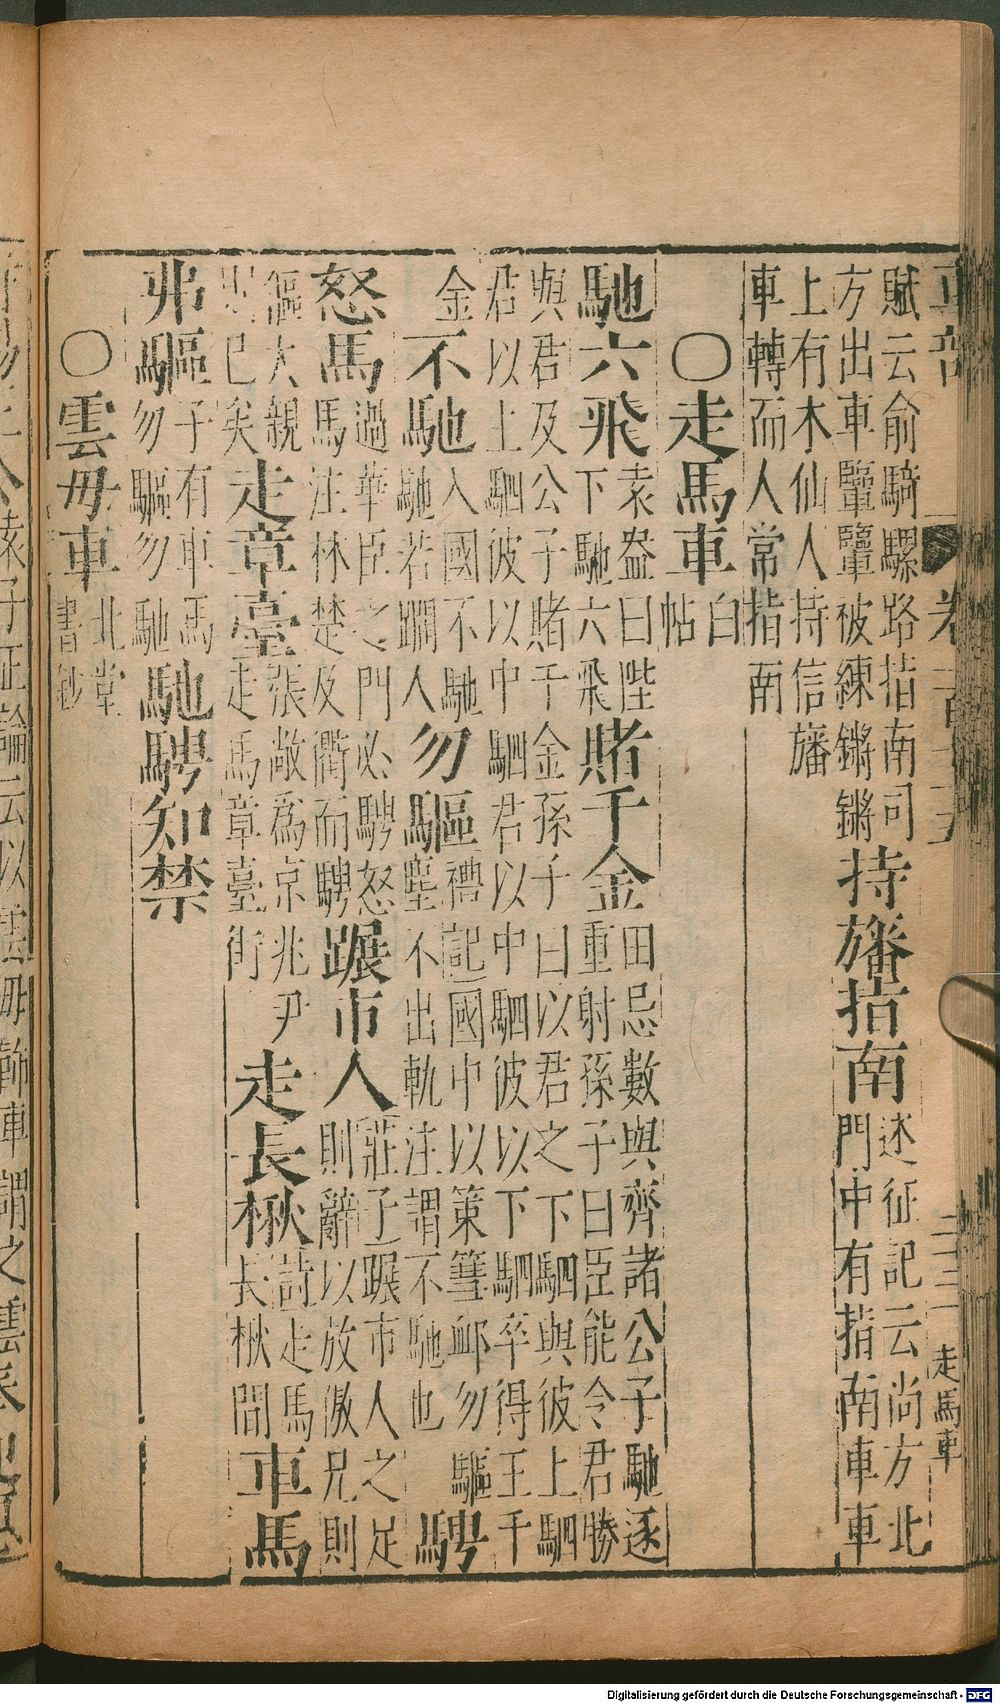 車部
卷
走馬車
賦云俞騎騾路指南司
方出車鼙鼙被練鏘鏘
持旛指南
述征記云尚方北
門中有指南車車
上有木仙人持信旛
車轉而人常指南
〇走馬車
白
帖
馳六飛
袁盎曰陛
下馳六飛
賭千金
田忌數與齊諸公子馳逐
重射孫子曰臣能令君勝
與君及公子賭千金孫子曰以君之下駟與彼上駟
君以上駟彼以中駟君以中駟彼以下駟卒得王千
金
不馳
入國不馳
馳若躙人
勿驅
禮記國中以策篲卹勿驅
塵不出軌注謂不馳也
騁
怒馬
過華臣之門必騁怒
馬注林楚及衢而騁
蹍市人
莊子蹍市人之足
則辭以放傲兄則
傴大親
已矣
走章臺
張敞為京兆尹
走馬章臺街
走長楸
詩走馬
長楸間
車馬
弗驅
子有車馬
勿驅勿馳
馳騁知禁
〇雲毋車
北堂
書鈔
袁子正論云以雲毋飾車謂之雲
Digitalisierung gefördert durch die Deutsche Forschungsgemeinschaft - DFG